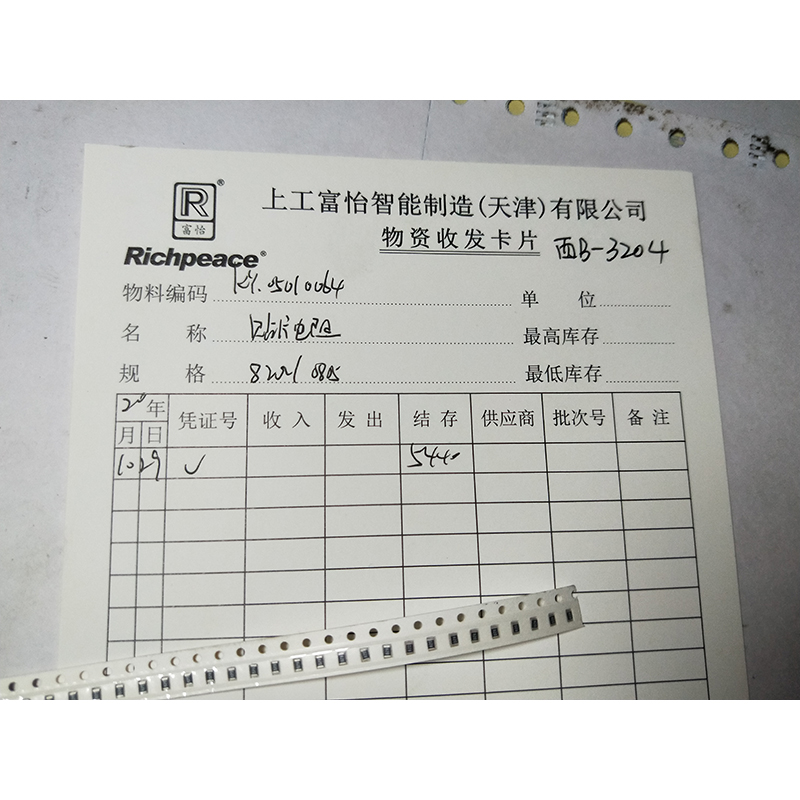 R®
富怡
Richpeace®
上工富怡智能制造(天津)有限公司
物资收发卡片 西B-3204
物料编码 05010064 单位
名称 贴片电阻 最高库存
规格 820R/0805 最低库存
20年 凭证号 收入 发出 结存 供应商 批次号 备注
月 日
10 29 ✓ 5440